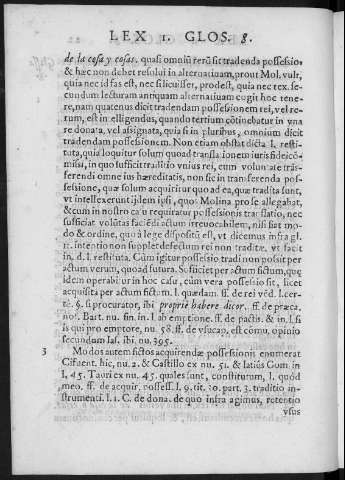 LEX 1. GLOS. 8.
de la cosa y cosas. quasi omniũ rerũ sit tradenda possessio,
& hæc non debet resolui in alternatiuam, prout Mol. vult,
quia nec id fas est, nec si licuisset, prodest, quia nec tex. se-
cundum lecturam antiquam alternatiuam cogit hoc tene-
re, nam quatenus dicit tradendam possessionem rei, vel re-
rum, est in elligendus, quando tertium cõtinebatur in vna
re donata, vel assignata, quia si in pluribus, omnium dicit
tradendam possessionem. Non etiam obstat dicta l. resti-
tuta, quia loquitur solum quoad translationem iuris fideicõ-
missi, in quo sufficit traditio vnius rei, cum voluntate trãs-
ferendi omne ius hæreditatis, non sic in transferenda pos-
sessione, quæ solum acquiritur quo ad ea, quæ tradita sunt,
vt intellexerunt ijdem ipsi, quos Molina pro se allegabat,
& cum in nostro casu requiratur possessionis translatio, nec
sufficiat volũtas faciẽdi actum irreuocabilem, nisi fiat mo-
do & ordine, quo à lege dispositũ est, vt dicemus infra gl.
11. intentio non supplet defectum rei non traditæ, vt facit
in. d. l. restituta. Cùm igitur possessio tradi non possit per
actum verum, quoad futura. Sufficiet per actum fictum, que
idem operabitur in hoc casu, cùm vera possessio sit, licet
acquisita per actum fictum. l. quædam. ff. de rei vẽd. l. cer-
tè. §. si procurator, ibi proprie habere dicor. ff. de præca.
not. Bart. nu. fin. in. l. ab emptione. ff. de pactis. & in. l. si
is qui pro emptore, nu. 58. ff. de vsucap, est cõmu. opinio
secundum Ias. ibi. nu. 395.
3 Modos autem fictos acquirendæ possessionis enumerat
Cifuent. hic, nu. 2. & Castillo ex nu. 51. & latiùs Gom. in
l. 45. Tauri ex nu. 45. quales sunt, constitutum, l. quod
meo. ff. de acquir. possess. l. 9. tit. 30. part. 3. traditio in-
strumenti. l. 1. C. de dona. de quo infra agimus, retentio
vsus